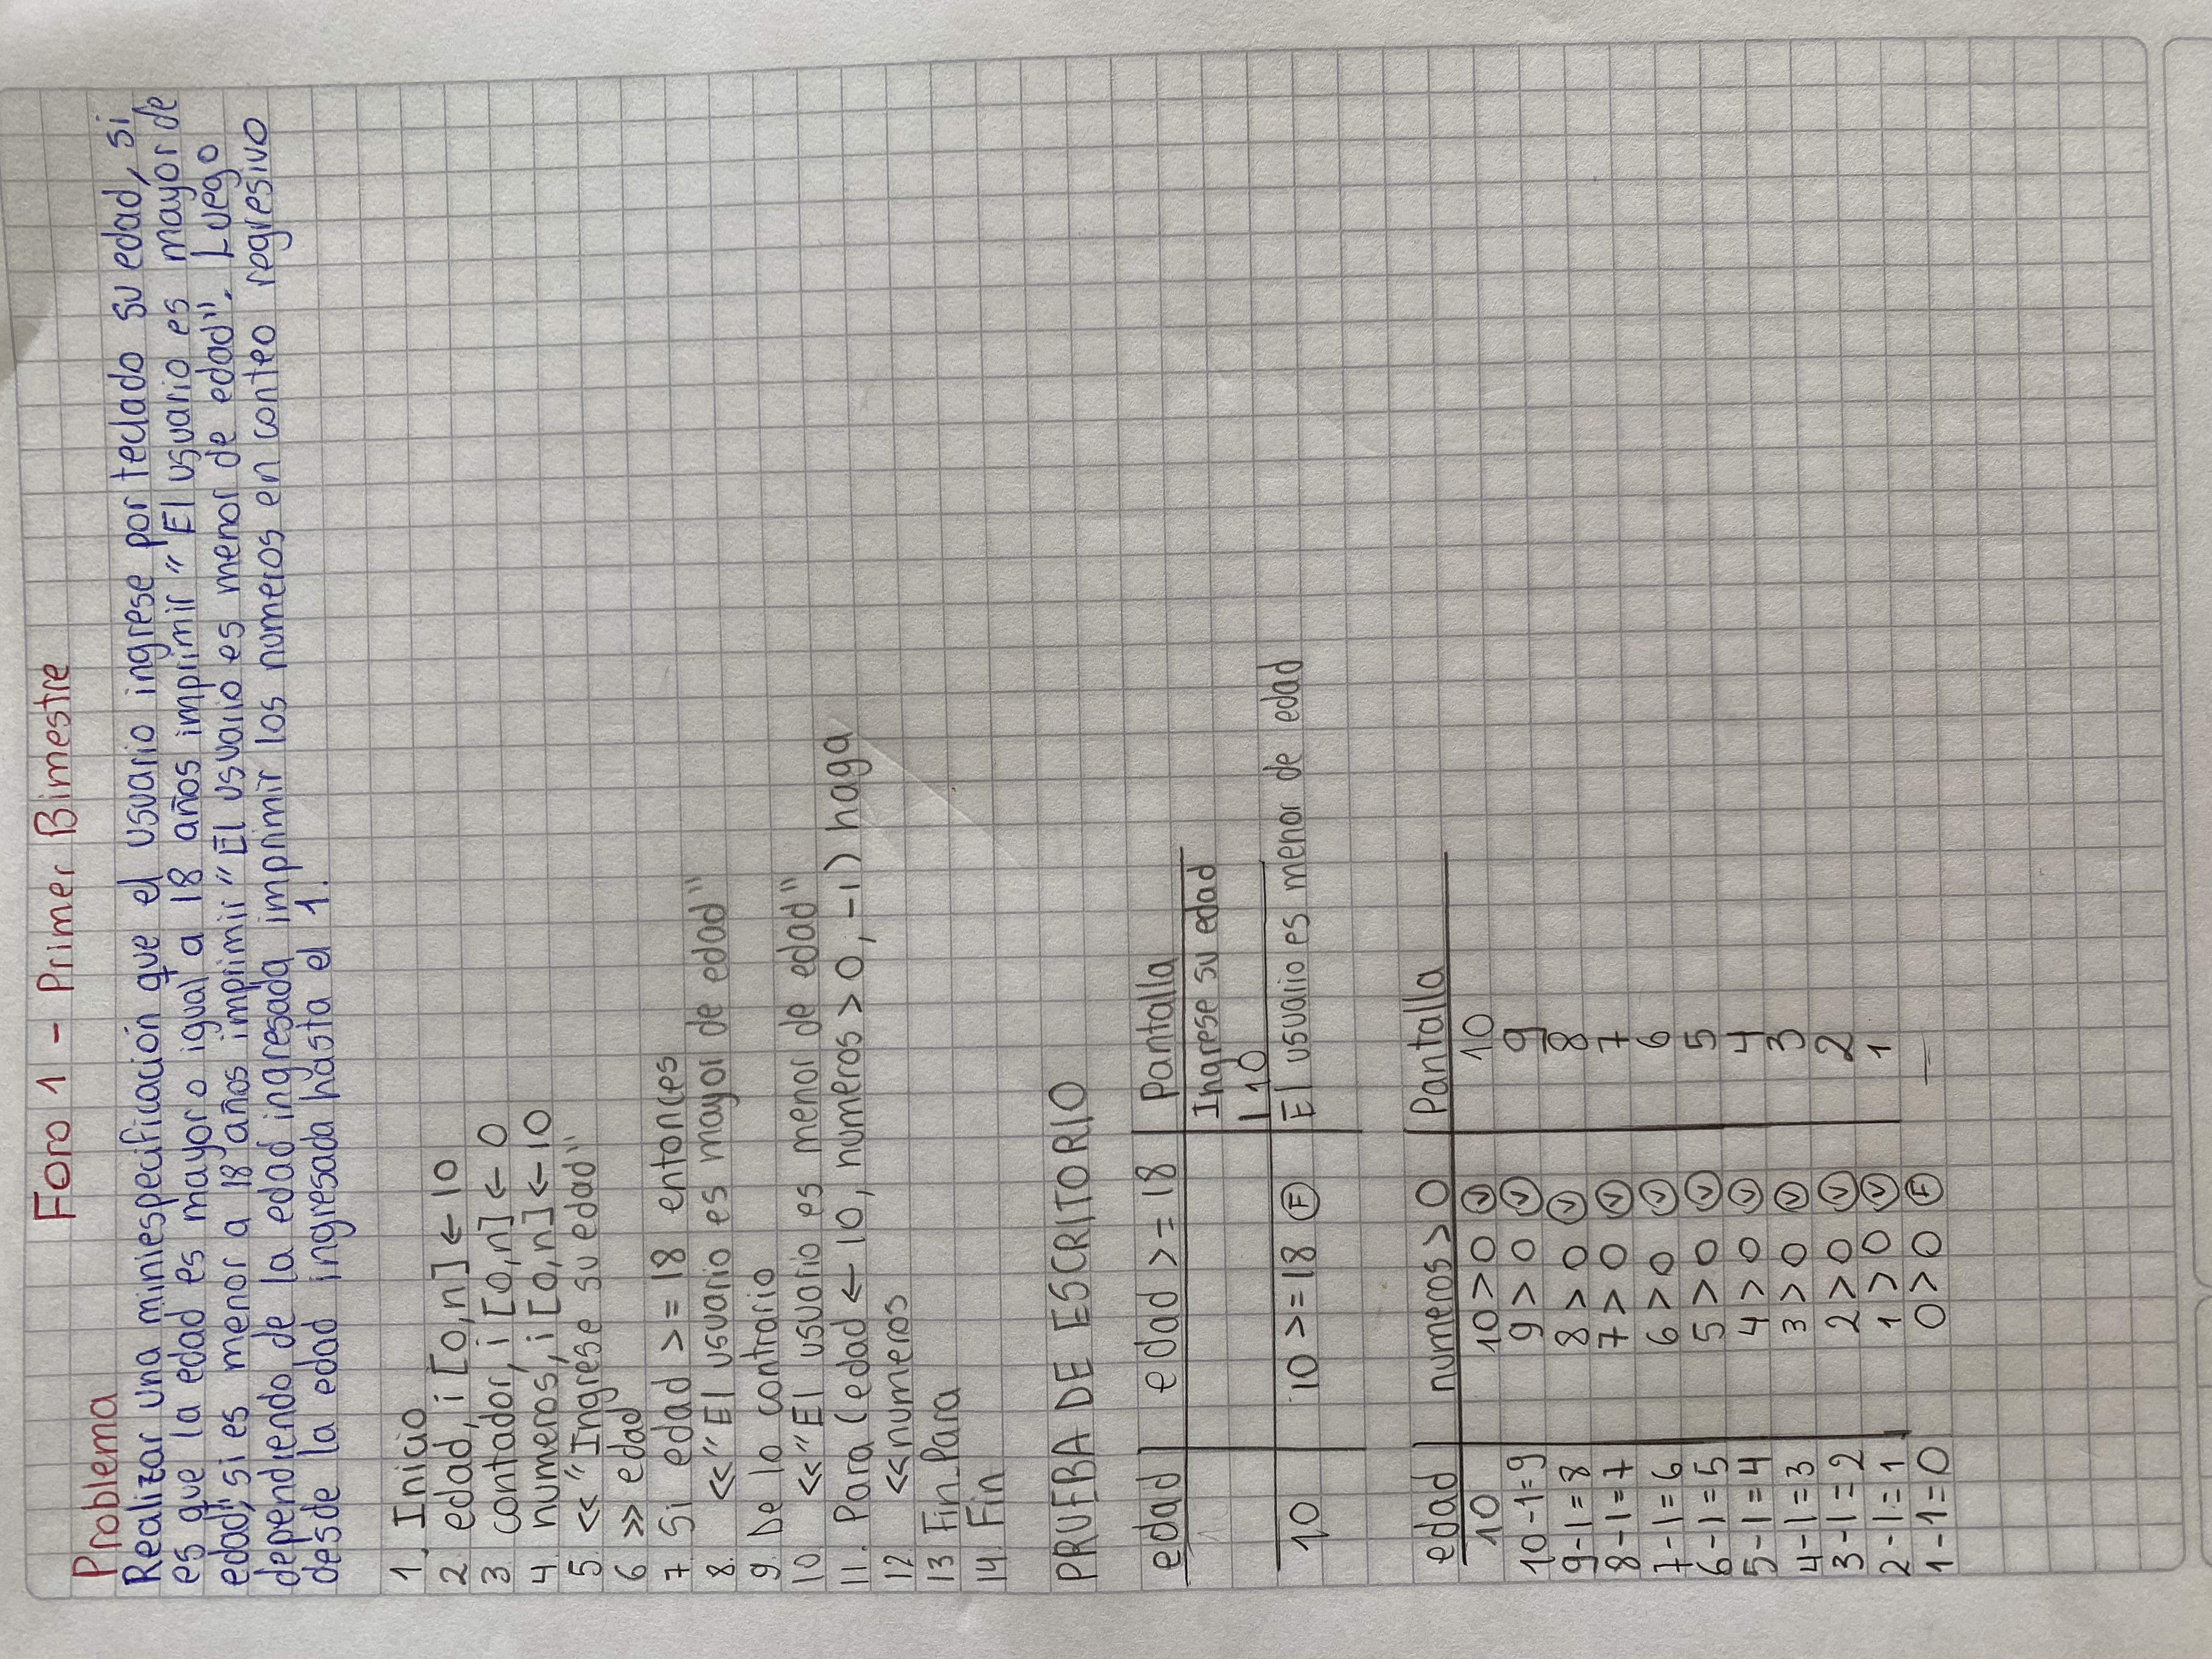 Foro 1 - Primer Bimestre
Problema
Realizar una miniespecificación que el usuario ingrese por teclado su edad, si
es que la edad es mayor o igual a 18 años imprimir "El usuario es mayor de
edad", si es menor a 18 años imprimir "El usuario es menor de edad". Luego
dependiendo de la edad ingresada imprimir los numeros en conteo regresivo
desde la edad ingresada hasta el 1.
1. Inicio
2 edad, i [0,n] ← 10
3. contador, i [0,n] ← 0
4. numeros, i [0,n] ← 10
5. << "Ingrese su edad"
6 >> edad
7. Si edad >= 18 entonces
8. << "El usuario es mayor de edad"
9. De lo contrario
10 << "El usuario es menor de edad"
11. Para (edad ← 10, numeros > 0, -1) haga
12 << numeros
13 Fin_Para
14. Fin
PRUEBA DE ESCRITORIO
edad edad >= 18 Pantalla
Ingrese su edad
| 10
10 10 >= 18 F El usuario es menor de edad
edad numeros > 0 Pantalla
10 10 > 0 V 10
10-1=9 9 > 0 V 9
9-1=8 8 > 0 V 8
8-1=7 7 > 0 V 7
7-1=6 6 > 0 V 6
6-1=5 5 > 0 V 5
5-1=4 4 > 0 V 4
4-1=3 3 > 0 V 3
3-1=2 2 > 0 V 2
2-1=1 1 > 0 V 1
1-1=0 0 > 0 F —